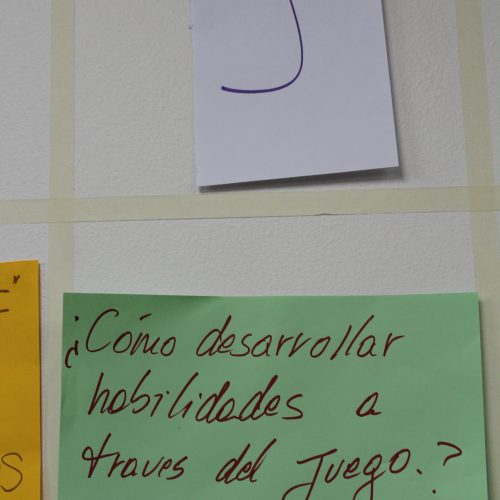 J
E"
S
¿Cómo desarrollar
habilidades a
traves del Juego.?